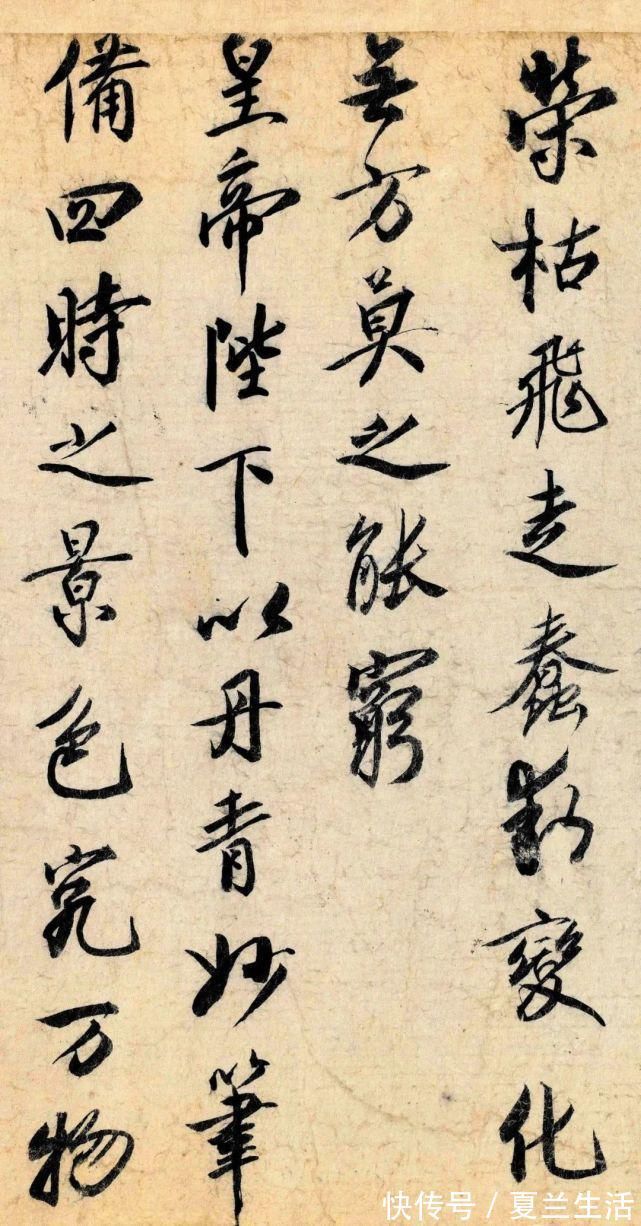 榮枯飛走蠢動變化
無方莫之能窮
皇帝陛下以丹青妙筆
備四時之景色究万物
快传号/夏兰生活